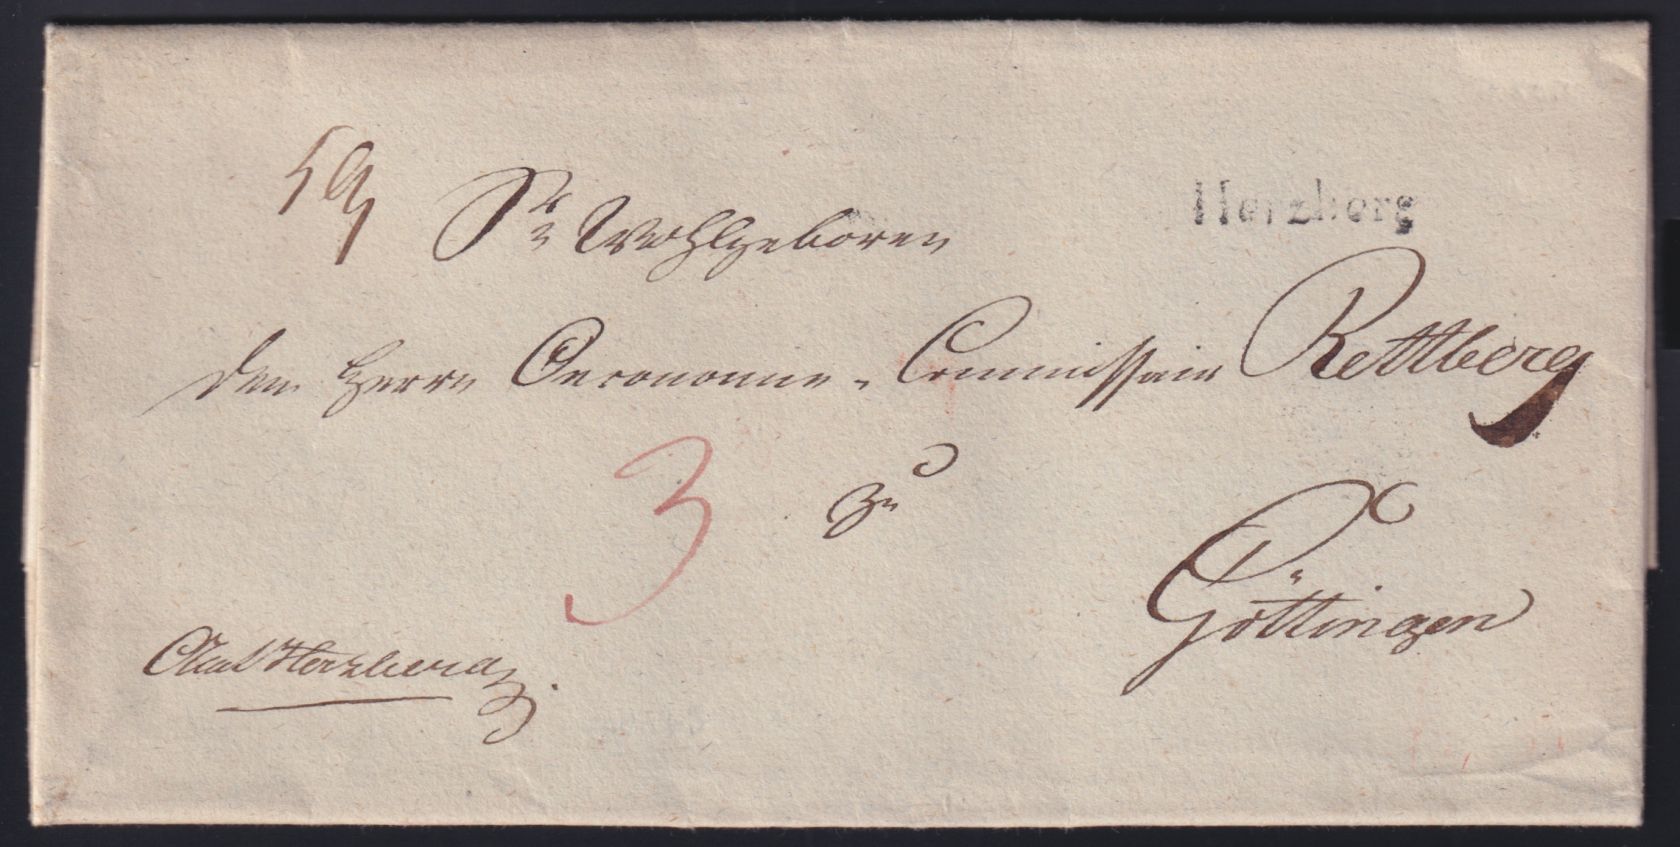 Herzberg
Sr Wohlgeboren
dem Herrn Oeconomie-Commissair Rettberg
3
zu
Göttingen
Amt Herzberg.